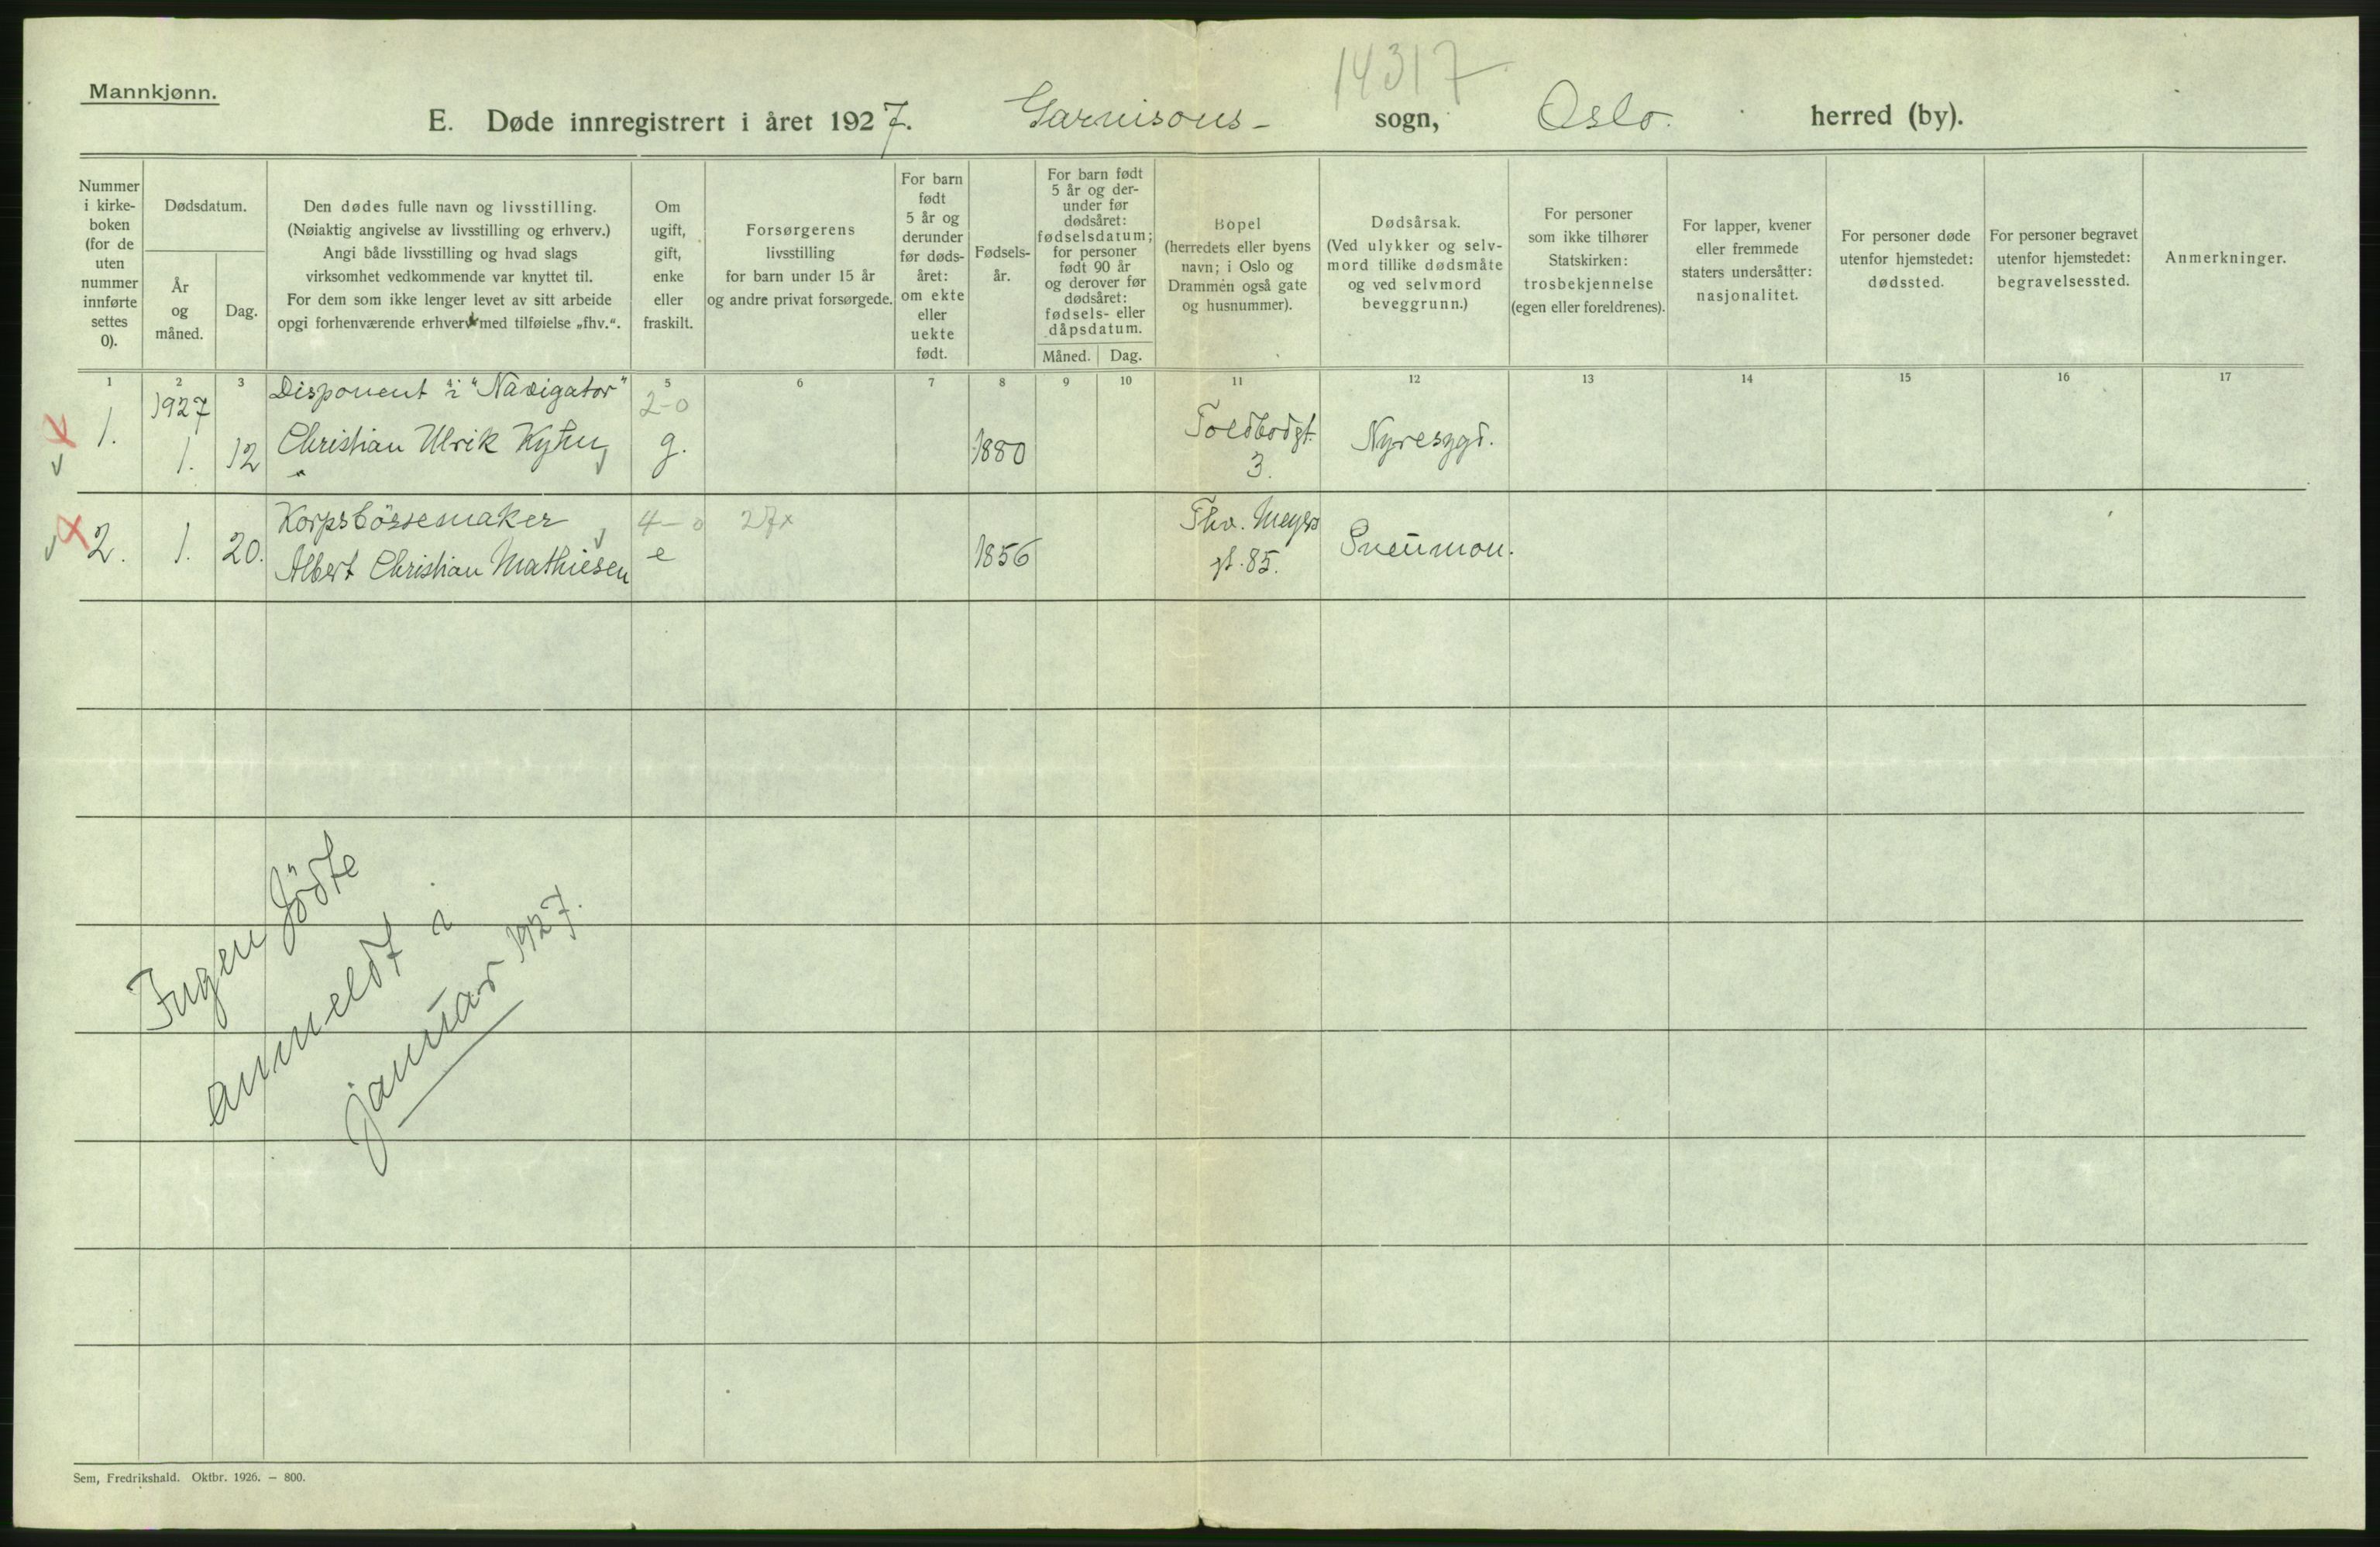 14317
Mannkjønn.
E. Døde innregistrert i året 1927. Garnisons- sogn, Oslo. herred (by).
Nummer
i kirke-
boken
(for de
uten
nummer
innførte
settes
0).
Dødsdatum.
År
og
måned.
Dag.
Den dødes fulle navn og livsstilling.
(Nøiaktig angivelse av livsstilling og erhverv.)
Angi både livsstilling og hvad slags
virksomhet vedkommende var knyttet til.
For dem som ikke lenger levet av sitt arbeide
opgi forhenværende erhverv med tilføielse „fhv.“.
Om
ugift,
gift,
enke
eller
fraskilt.
Forsørgerens
livsstilling
for barn under 15 år
og andre privat forsørgede.
For barn
født
5 år og
derunder
før døds-
året:
om ekte
eller
uekte
født.
Fødsels-
år.
For barn født
5 år og der-
under før
dødsåret:
fødselsdatum;
for personer
født 90 år
og derover før
dødsåret:
fødsels- eller
dåpsdatum.
Måned. Dag.
Bopel
(herredets eller byens
navn; i Oslo og
Drammen også gate
og husnummer).
Dødsårsak.
(Ved ulykker og selv-
mord tillike dødsmåte
og ved selvmord
beveggrunn.)
For personer
som ikke tilhører
Statskirken:
trosbekjennelse
(egen eller foreldrenes).
For lapper, kvener
eller fremmede
staters undersåtter:
nasjonalitet.
For personer døde
utenfor hjemstedet:
dødssted.
For personer begravet
utenfor hjemstedet:
begravelsessted.
Anmerkninger.
1 2 3 4 5 6 7 8 9 10 11 12 13 14 15 16 17
1927 Disponent i "Navigator" 2-0 Toldbodgt.
1. 1. 12 Christian Ulrik g. 1880 3. Nyresygd.
Korpsbössemaker 4-0 27x Thv. Meyers
2. 1. 20. Albert Christian Mathiesen e 1856 gt. 85. Pneumon.
Ingen födte
anmeldt i
januar 1927.
Sem, Fredrikshald. Oktbr. 1926. — 800.